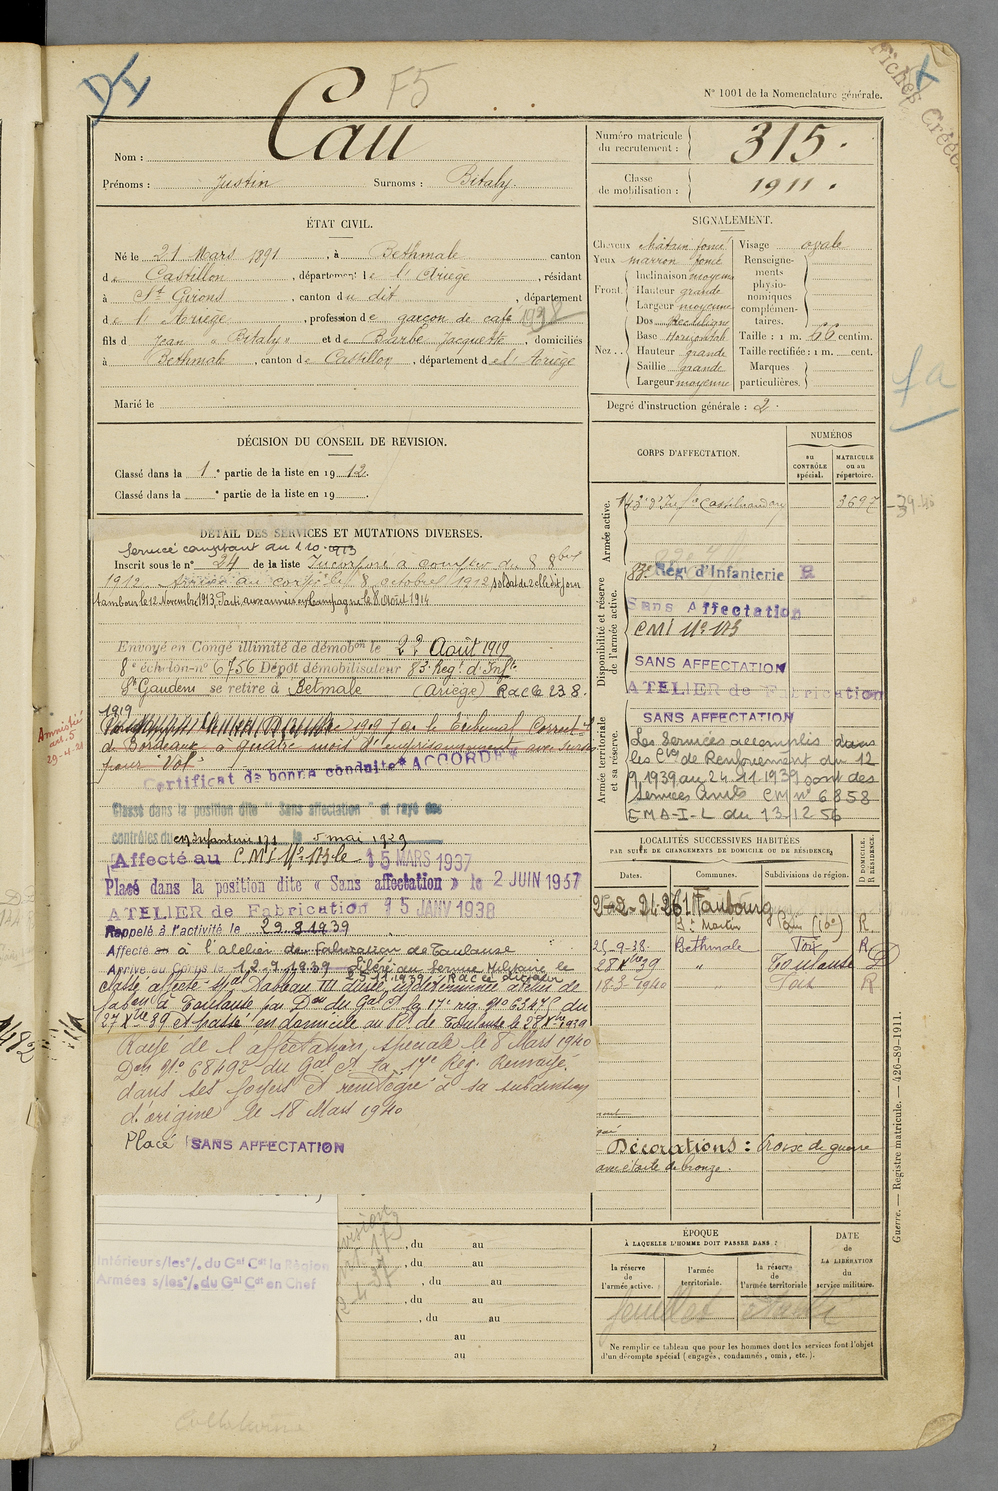 DI
F5
Fiches Créées
N° 1001 de la Nomenclature générale.
Nom : Cau
Prénoms : Justin Surnoms : Bitaly
Numéro matricule du recrutement : 315.
Classe de mobilisation : 1911.
ÉTAT CIVIL.
Né le 21 Mars 1891, à Bethmale canton
de Castillon, département de l'Ariège, résidant
à St Girons, canton du dit, département
de l'Ariège, profession de garçon de café
1938
fils de Jean "Bitaly" et de Barbe Jacquette, domiciliés
à Bethmale, canton de Castillon, département de l'Ariège
Marié le
SIGNALEMENT.
Cheveux châtain foncé
Yeux marron foncé
Front. Inclinaison moyenne
Hauteur grande
Largeur moyenne
Nez.. Dos Rectiligne
Base Horizontale
Hauteur grande
Saillie grande
Largeur moyenne
Visage ovale
Renseignements physionomiques complémentaires.
Taille : 1 m. 66 centim.
Taille rectifiée : 1 m. cent.
Marques particulières.
Degré d'instruction générale : 2.
DÉCISION DU CONSEIL DE REVISION.
Classé dans la 1e partie de la liste en 1912.
Classé dans la e partie de la liste en 19 .
DÉTAIL DES SERVICES ET MUTATIONS DIVERSES.
Service comptant du 1.10.1913
Inscrit sous le n° 24 de la liste Incorporé à compter du 8 8bre
1912 Arrivé au corps le 8 octobre 1912 soldat de 2e cl. le dit jour
tambour le 12 Novembre 1913. Parti aux armées en Campagne le 8 Août 1914
Envoyé en Congé illimité de démobon le 22 Août 1919
8e échelon n° 6756 Dépôt démobilisateur 83e Regt d'Inf.
St Gaudens se retire à Betmale (Ariège) Rac le 23 8.
1919
1919 par le Tribunal Correct.
de Bordeaux à quatre mois d'emprisonnement avec sursis
pour "Vol"
Amnistié
art. 5
29-4-21
Certificat de bonne conduite "ACCORDÉ"
Classé dans la position dite "Sans affectation" et rayé des
contrôles du CM Infanterie 173 le 5 mai 1939
Affecté au C.M.I. N° 173 le 15 MARS 1937
Placé dans la position dite « Sans affectation » le 2 JUIN 1937
ATELIER de Fabrication 15 JANV 1938
Rappelé à l'activité le 29.8.1939
Affecté à l'atelier de fabrication de Toulouse
Arrivé au Corps le 12.9.1939 Libéré du Service Militaire le
25.11.1939
Classé affecté spal Tableau III durée indéterminée atelier de
fabon à Toulouse par Don du Gal Ct la 17e rég. n° 6347 S du
27 Xbre 39 et passé en domicile au Bu de Toulouse le 28 Xbre 1939
Rayé de l'affectation spéciale le 8 Mars 1940
Don N° 6849 S du Gal Ct la 17e Rég. Renvoyé
dans ses foyers et réintégré à sa subdivision
d'origine le 18 Mars 1940
Placé SANS AFFECTATION
Intérieur s/les °/. du Gal Cdt la Région
Armées s/les °/. du Gal Cdt en Chef
, du au
, du au
, du au
, du au
, du au
au
au
CORPS D'AFFECTATION.
NUMÉROS
au CONTRÔLE spécial.
MATRICULE ou au répertoire.
Armée active.
143e d'Inf. Castelnaudary 3697
Disponibilité et réserve de l'armée active.
83e Rég d'Infanterie
Sans Affectation
CMI N° 173
SANS AFFECTATION
ATELIER de Fabrication
SANS AFFECTATION
Armée territoriale et sa réserve.
Les Services accomplis dans
les Cies de Renforcement du 12
9.1939 au 24.11.1939 sont des
Services Amés CM n° 6858
EMA-I-L du 13.12.56
LOCALITÉS SUCCESSIVES HABITÉES
PAR SUITE DE CHANGEMENTS DE DOMICILE OU DE RÉSIDENCE.
Dates. Communes. Subdivisions de région. D DOMICILE. R RÉSIDENCE.
2-2-24 261 Faubourg
St Martin Paris (10e) R.
25-9-38. Bethmale Foix R
28 Xbre 39 " Toulouse D
18-3-1940 " Foix R
Décorations : Croix de guerre
avec étoile de bronze.
ÉPOQUE
À LAQUELLE L'HOMME DOIT PASSER DANS :
la réserve de l'armée active.
l'armée territoriale.
la réserve de l'armée territoriale
DATE de LA LIBÉRATION du service militaire.
Ne remplir ce tableau que pour les hommes dont les services font l'objet
d'un décompte spécial (engagés, condamnés, omis, etc.).
Guerre. — Registre matricule. — 426-89-1911.